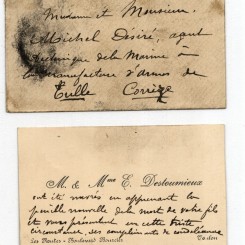 Madame et Monsieur
Michel Désiré, agent
technique de la Marine à
la Manufacture d'armes de
Tulle Corrèze
M. & Mme E. Destoumieux
ont été navrés en apprenant la
pénible nouvelle de la mort de votre fils
et vous présentent en cette triste
circonstance, ses compliments de condoléance
Boulevard Toulon